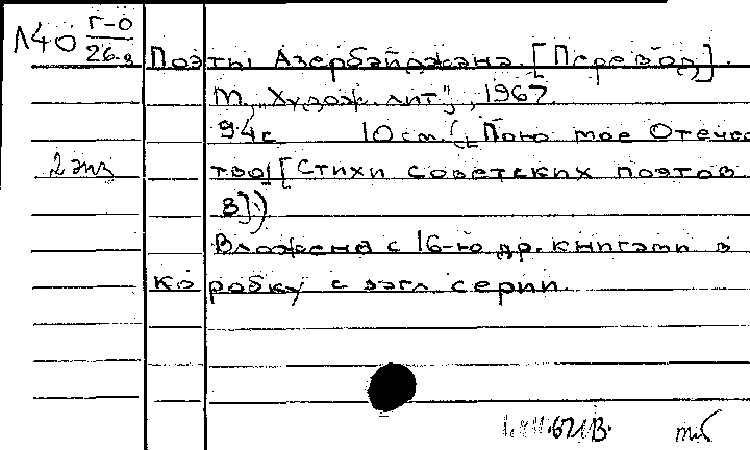 Л40 Г-0
26.9
Поэты Азербайджана. [Перевод].
М., "Худож. лит.", 1967.
94 с 10 см. ("Пою мое Отечес
2 экз тво" [Стихи советских поэтов
в])
Вложена с 16-ю др. книгами в
коробку с загл. серии.
67